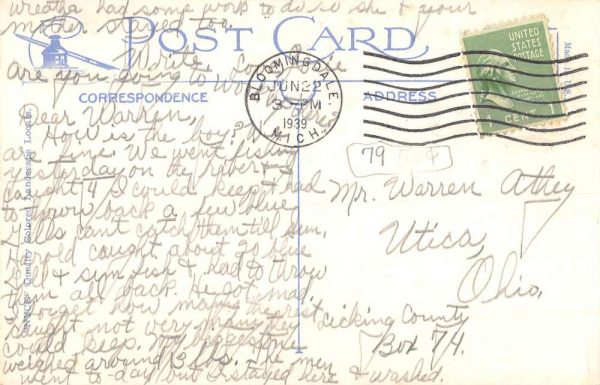 wreatha had some work to do so she & your
mother stayed too.
Write. Love
are you going to work
POST CARD
CORRESPONDENCE
ADDRESS
BLOOMINGDALE, MICH.
JUN 22
3 PM
1939
UNITED
STATES
POSTAGE
1 CENT 1
79 504
Dear Warren,
How is the boy?
as I me. We went fishing
yesterday on the river & I
caught 4 I could keep & had
to throw back a few blue
gills can't catch them till sun.
Harold caught about 20 blue
gill & sun fish & had to throw
them all back. He got mad.
I forget how many the rest
caught not very many they
could keep. My biggest one
weighed around 3 lbs. The men
went to-day but I stayed here & washed.
Mr. Warren Athey
Utica,
Ohio.
Licking County
Box 74.
Quality Colored Landscape
Made in U.S.A.